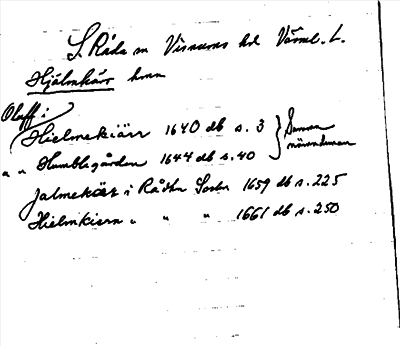 S. Råda sn Visnums hd Värml. L.
Hjälmkärr hmn
Olaff i
Hielmekiärr 1640 db s. 3 } Samma
" " Humblegården 1644 db s. 40
Jalmekäst i Rådha Sochn 1659 db s. 225
Hielmkiern " " " 1661 db s. 250